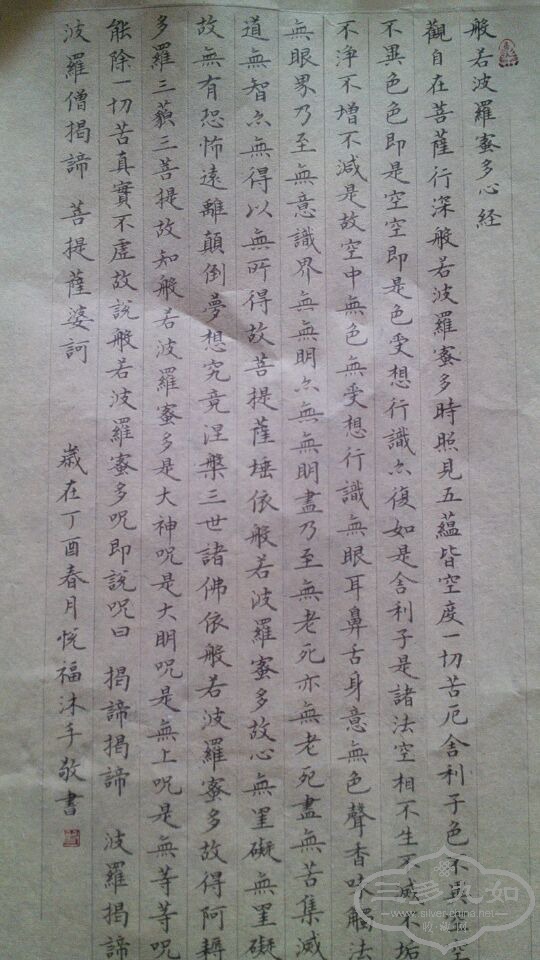 般若波羅蜜多心経
觀自在菩薩行深般若波羅蜜多時照見五蘊皆空度一切苦厄舎利子色不異空空
不異色色即是空空即是色受想行識亦復如是舎利子是諸法空相不生不滅不垢
不淨不增不減是故空中無色無受想行識無眼耳鼻舌身意無色聲香味觸法
無眼界乃至無意識界無無明亦無無明盡乃至無老死亦無老死盡無苦集滅
道無智亦無得以無所得故菩提薩埵依般若波羅蜜多故心無罣礙無罣礙
故無有恐怖遠離顛倒夢想究竟涅槃三世諸佛依般若波羅蜜多故得阿耨
多羅三藐三菩提故知般若波羅蜜多是大神呪是大明呪是無上呪是無等等呪
能除一切苦真實不虛故說般若波羅蜜多呪即說呪曰 揭諦揭諦 波羅揭諦
波羅僧揭諦 菩提薩婆訶
歲在丁酉春月悅福沐手敬書
三多九如
www.silver-china.net
收藏網